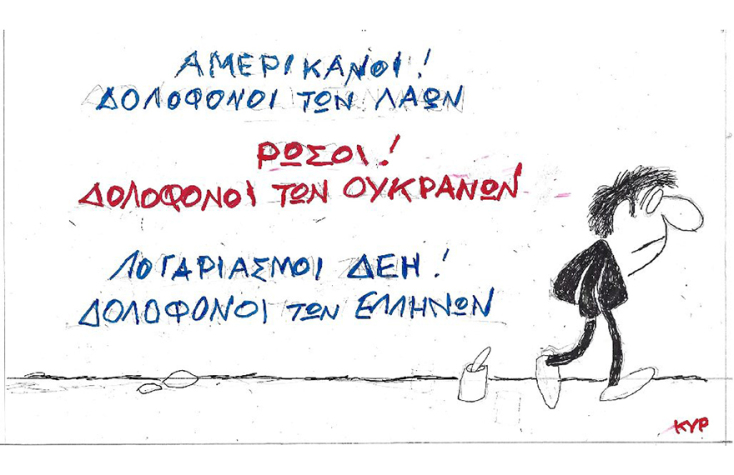 ΑΜΕΡΙΚΑΝΟΙ!
ΔΟΛΟΦΟΝΟΙ ΤΩΝ ΛΑΩΝ
ΡΩΣΟΙ!
ΔΟΛΟΦΟΝΟΙ ΤΩΝ ΟΥΚΡΑΝΩΝ
ΛΟΓΑΡΙΑΣΜΟΙ ΔΕΗ!
ΔΟΛΟΦΟΝΟΙ ΤΩΝ ΕΛΛΗΝΩΝ
ΚΥΡ